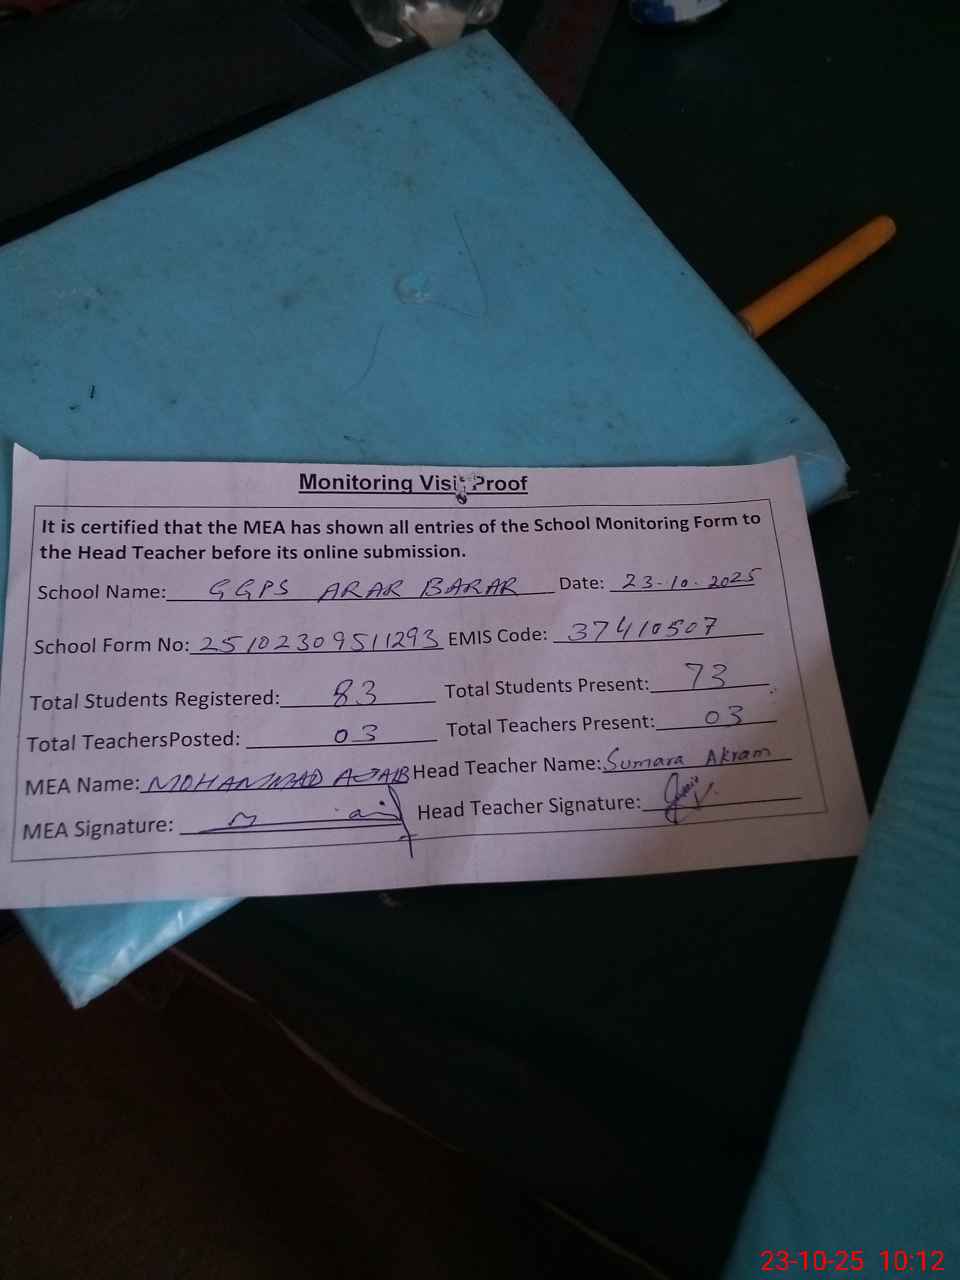 Monitoring Visit Proof
It is certified that the MEA has shown all entries of the School Monitoring Form to
the Head Teacher before its online submission.
School Name: GGPS ARAR BARAR Date: 23-10-2025
School Form No: 25102309511293 EMIS Code: 37410507
Total Students Registered: 83 Total Students Present: 73
Total TeachersPosted: 03 Total Teachers Present: 03
MEA Name: MOHAMMAD AJAIB Head Teacher Name: Sumara Akram
MEA Signature: Head Teacher Signature:
23-10-25 10:12